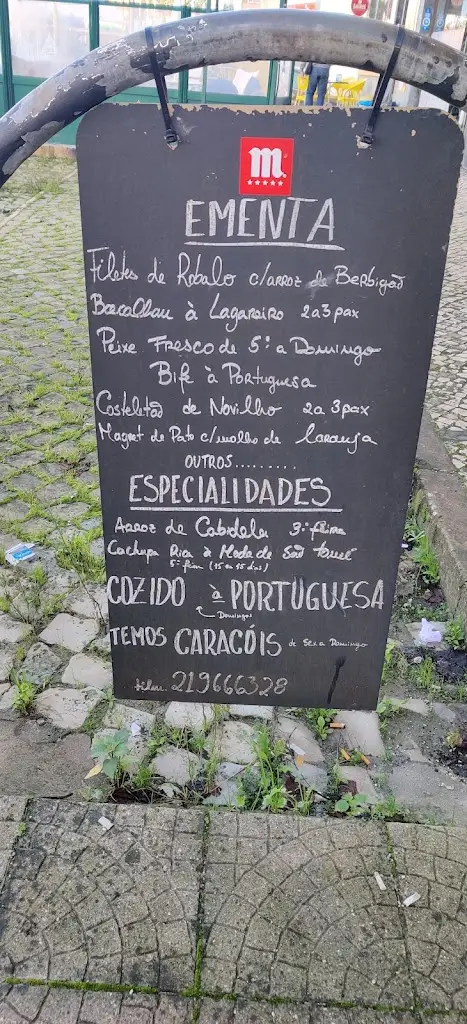 m
EMENTA
Filetes de Robalo c/arroz de Berbigão
Bacalhau à Lagareiro 2a3pax
Peixe Fresco de 5ª a Domingo
Bife à Portuguesa
Costeletão de Novilho 2a3pax
Magret de Pato c/molho de laranja
OUTROS.........
ESPECIALIDADES
Arroz de Cabidela 3ª feira
Cachupa Rica à Moda de São tomé
5ª feira (15 em 15 dias)
COZIDO à PORTUGUESA
Domingos
TEMOS CARACÓIS de Sex a Domingo
219666328